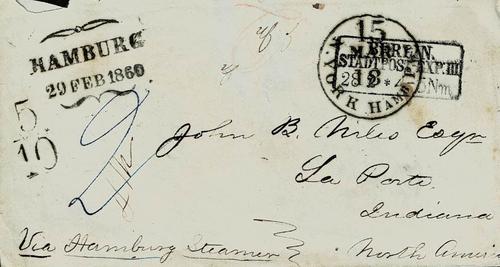 HAMBURG
29 FEB 1860
15
N. YORK HAMB. PK
MAR
18
BERLIN
STADTPOST EXP. III
28 2 * 7
5
10
2
John B. Niles Esqr
La Porte,
Indiana
Via Hamburg Steamer
North Ameri